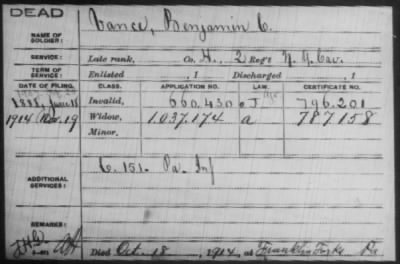 DEAD
NAME OF SOLDIER: Vance, Benjamin C.
SERVICE: Late rank, Co. H, 2 Reg't N.Y. Cav.
TERM OF SERVICE: Enlisted , 1 Discharged , 1
DATE OF FILING. CLASS. APPLICATION NO. LAW. CERTIFICATE NO.
June 18 Invalid, 660.430 J 796.201
1914 Nov. 19 Widow, 1.037.174 a 787.158
Minor.
ADDITIONAL SERVICES: C. 151. Pa. Inf
REMARKS:
Died Oct. 18, 1914, at Franklin Forks Pa